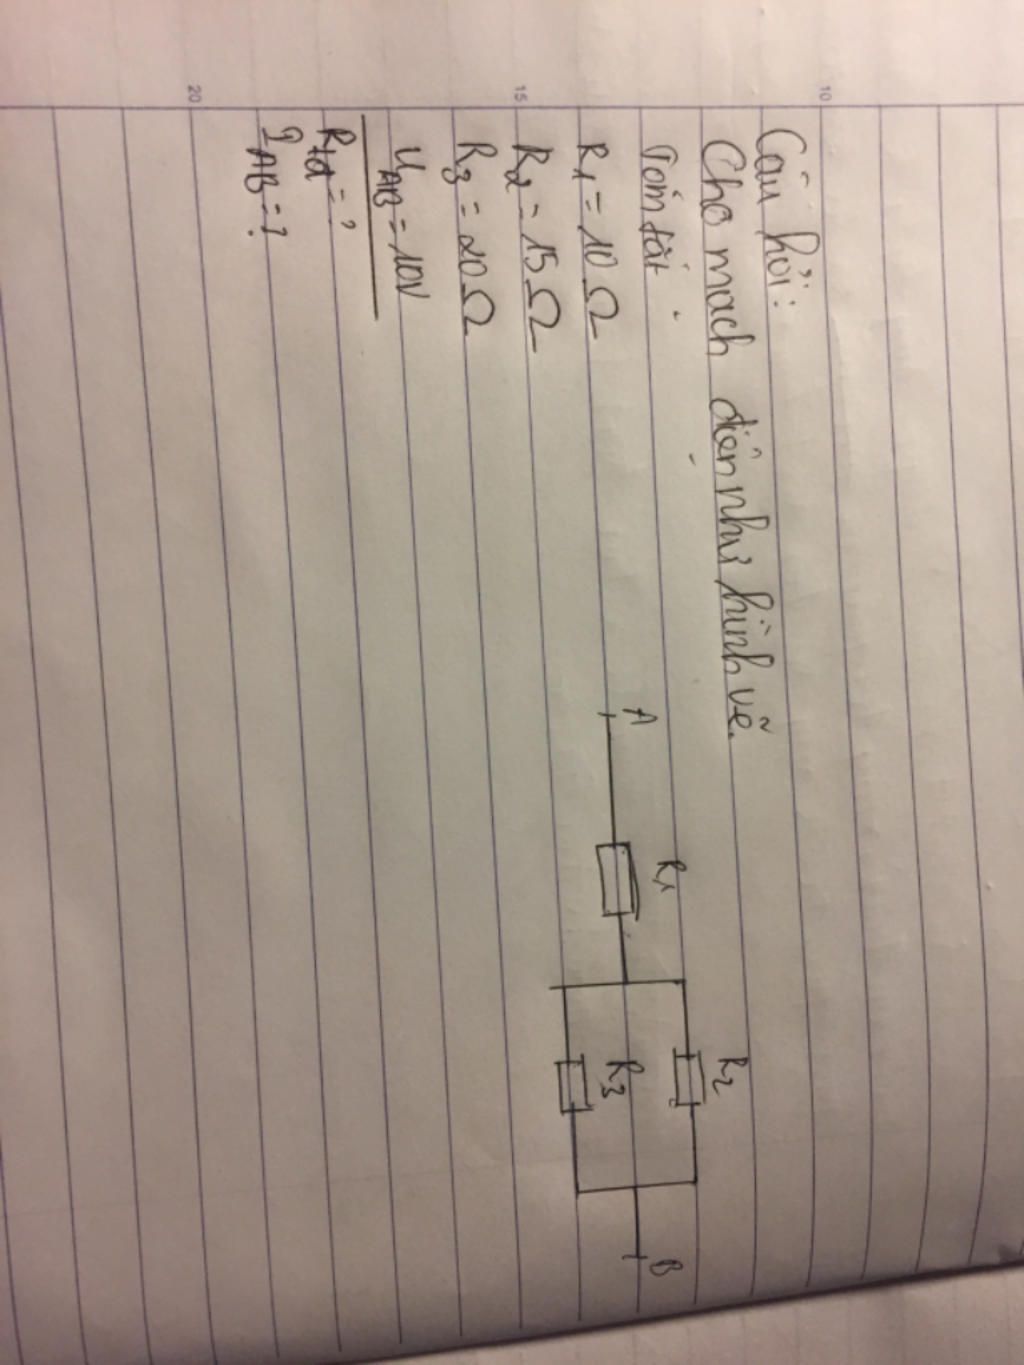 Câu hỏi:
Cho mạch điện như hình vẽ.
Tóm tắt
R1 = 10 Ω
R2 = 15 Ω
R3 = 20 Ω
UAB = 10V
Rtđ = ?
IAB = ?
A
R1
R2
R3
B
10
15
20